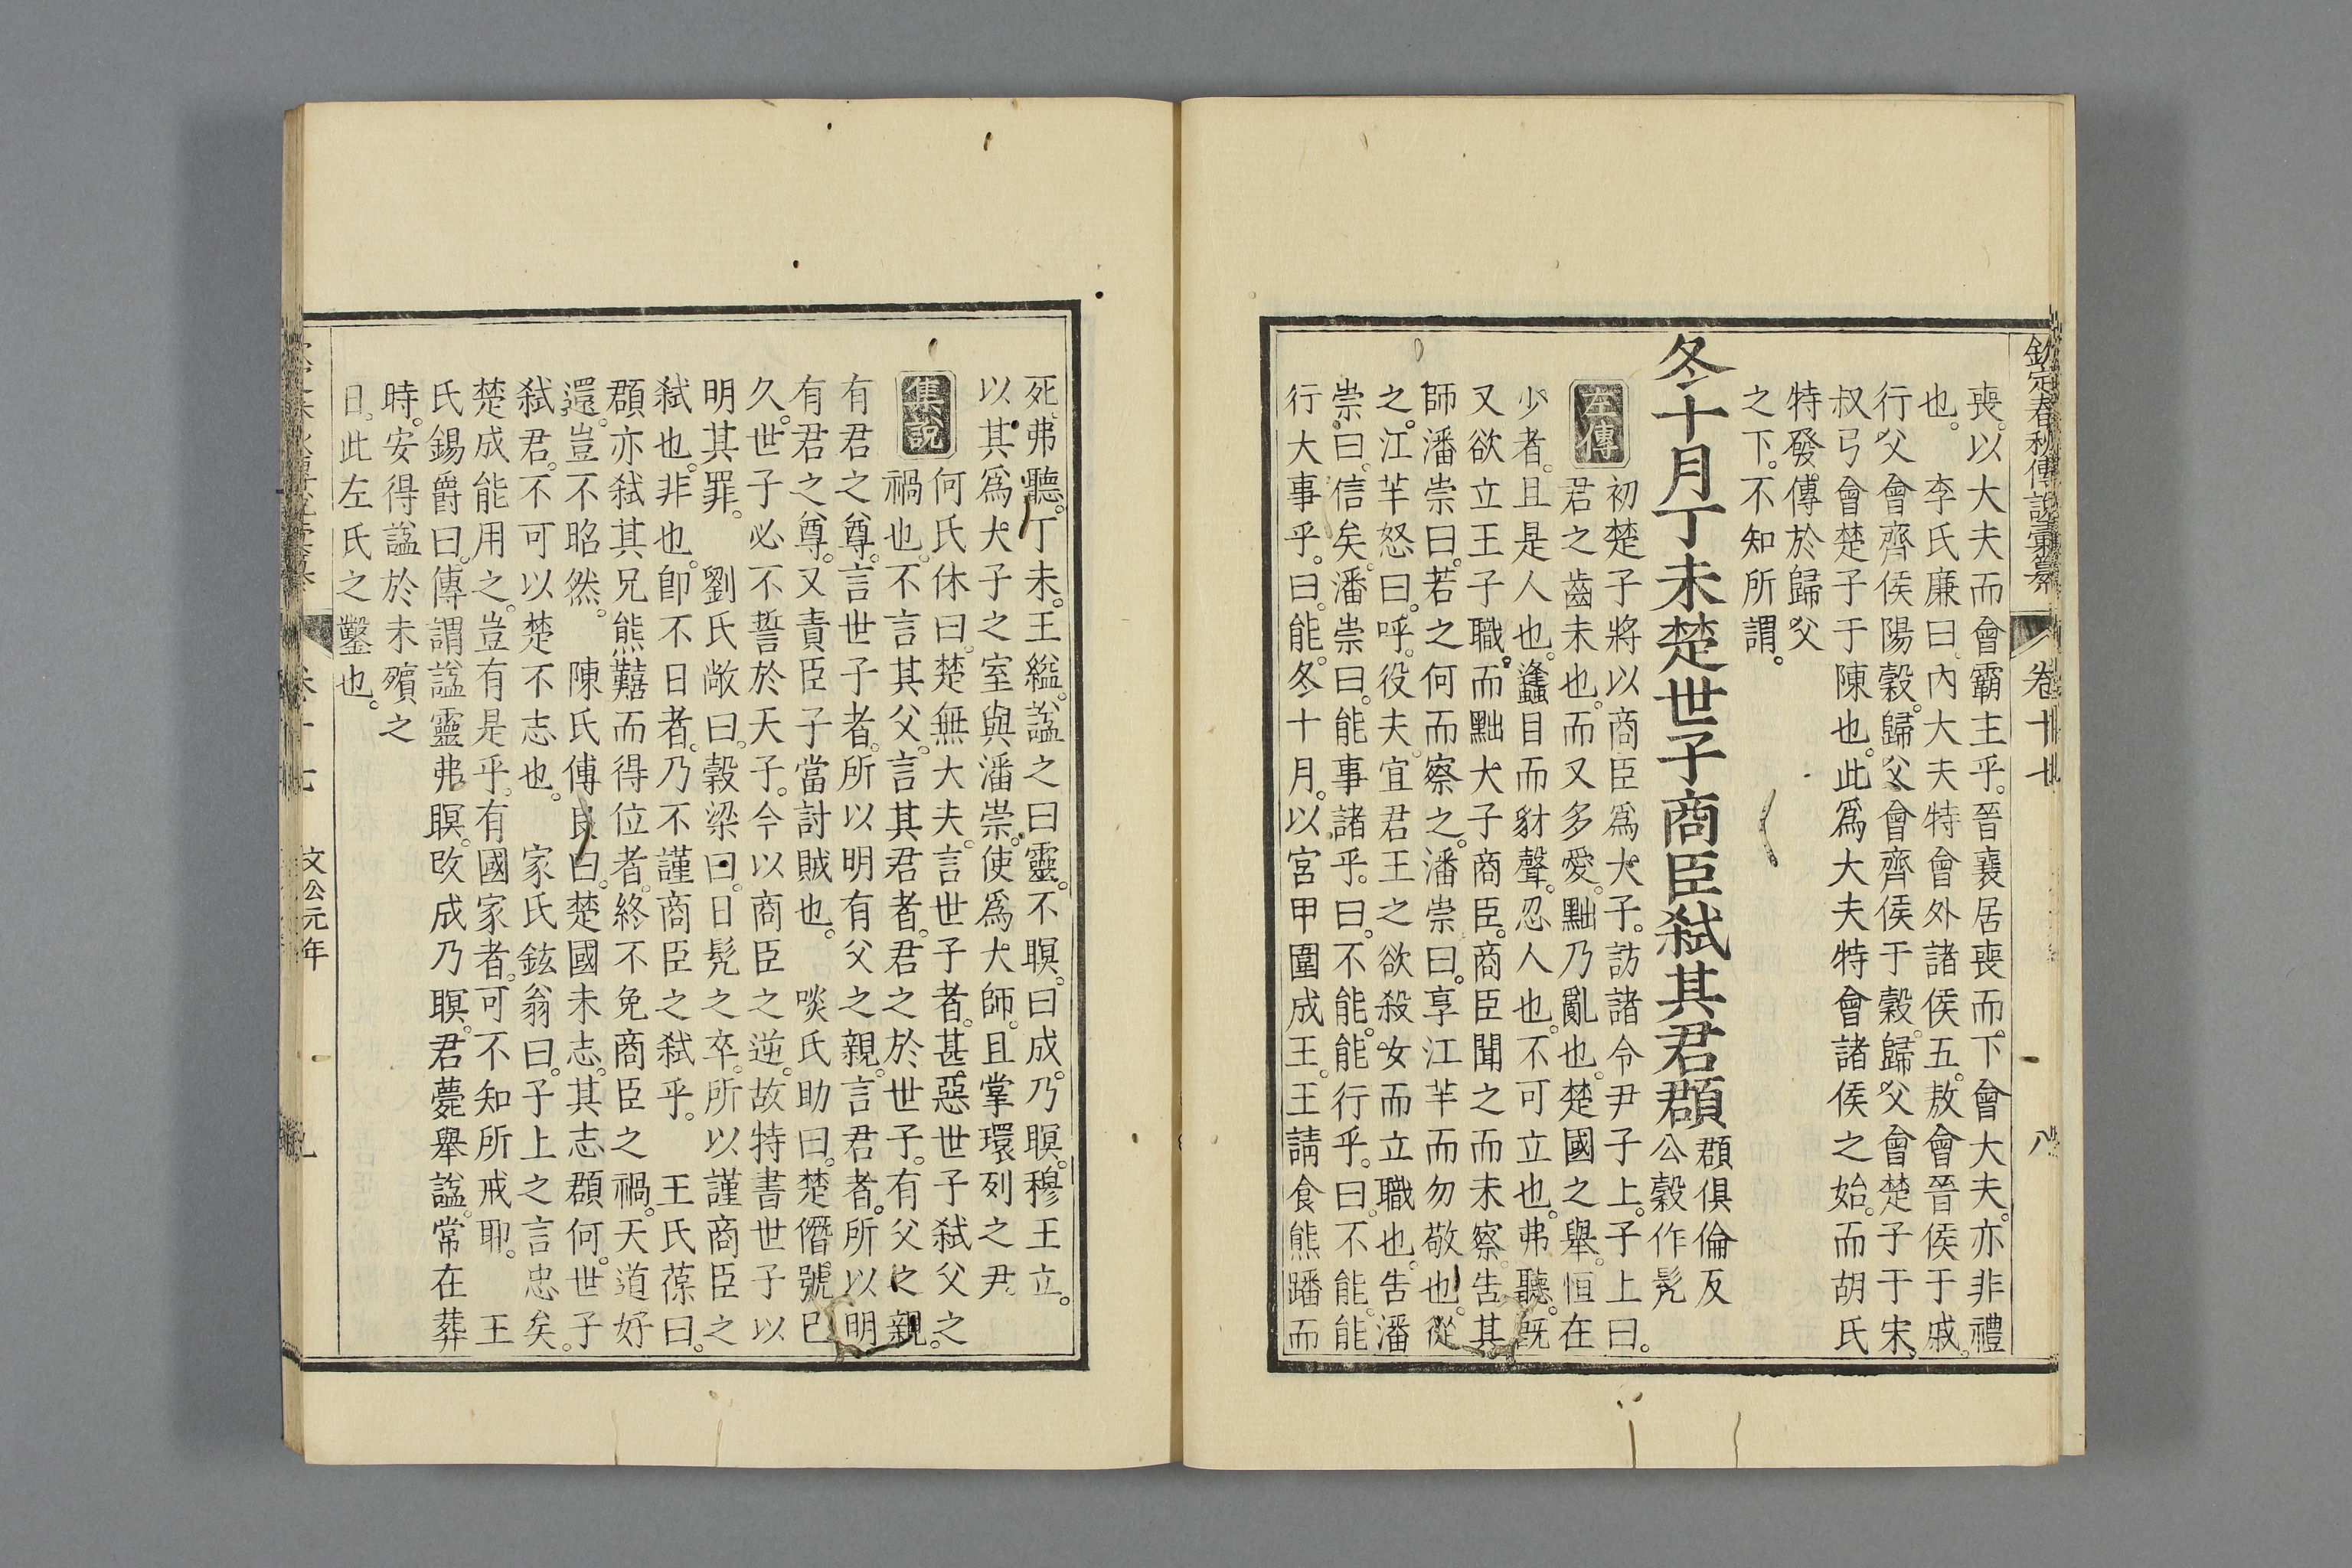 欽定春秋傳說彙纂 卷十七 八
喪。以大夫而會霸主乎。晉襄居喪而下會大夫。亦非禮
也。 李氏廉曰。內大夫特會外諸侯五。敖會晉侯于戚。
行父會齊侯陽穀。歸父會齊侯于穀。歸父會楚子于宋。
叔弓會楚子于陳也。此爲大夫特會諸侯之始。而胡氏
特發傳於歸父
之下。不知所謂。
冬十月丁未楚世子商臣弒其君頵
頵俱倫反
公穀作髡
左傳
初楚子將以商臣爲大子。訪諸令尹子上。子上曰。
君之齒未也。而又多愛。黜乃亂也。楚國之舉。恒在
少者。且是人也。蠭目而豺聲。忍人也。不可立也。弗聽。旣
又欲立王子職。而黜大子商臣。商臣聞之而未察。告其
師潘崇曰。若之何而察之。潘崇曰。享江芈而勿敬也。從
之。江芈怒曰。呼。役夫。宜君王之欲殺女而立職也。告潘
崇曰。信矣。潘崇曰。能事諸乎。曰。不能。能行乎。曰。不能。能
行大事乎。曰。能。冬十月。以宮甲圍成王。王請食熊蹯而
死。弗聽。丁未。王縊。諡之曰靈。不瞑。曰成。乃瞑。穆王立。
以其爲大子之室與潘崇。使爲大師。且掌環列之尹。
集說
何氏休曰。楚無大夫。言世子者。甚惡世子弒父之
禍也。不言其父。言其君者。君之於世子。有父之親。
有君之尊。言世子者。所以明有父之親。言君者。所以明
有君之尊。又責臣子當討賊也。 啖氏助曰。楚僭號已
久。世子必不誓於天子。今以商臣之逆。故特書世子以
明其罪。 劉氏敞曰。穀梁曰。日髡之卒。所以謹商臣之
弒也。非也。卽不日者。乃不謹商臣之弒乎。 王氏葆曰。
頵亦弒其兄熊囏而得位者。終不免商臣之禍。天道好
還。豈不昭然。 陳氏傅良曰。楚國未志。其志頵何。世子
弒君。不可以楚不志也。 家氏鉉翁曰。子上之言忠矣。
楚成能用之。豈有是乎。有國家者。可不知所戒耶。 王
氏錫爵曰。傳謂諡靈弗瞑。改成乃瞑。君薨舉諡。常在葬
時。安得諡於未殯之
日。此左氏之鑿也。
文公元年